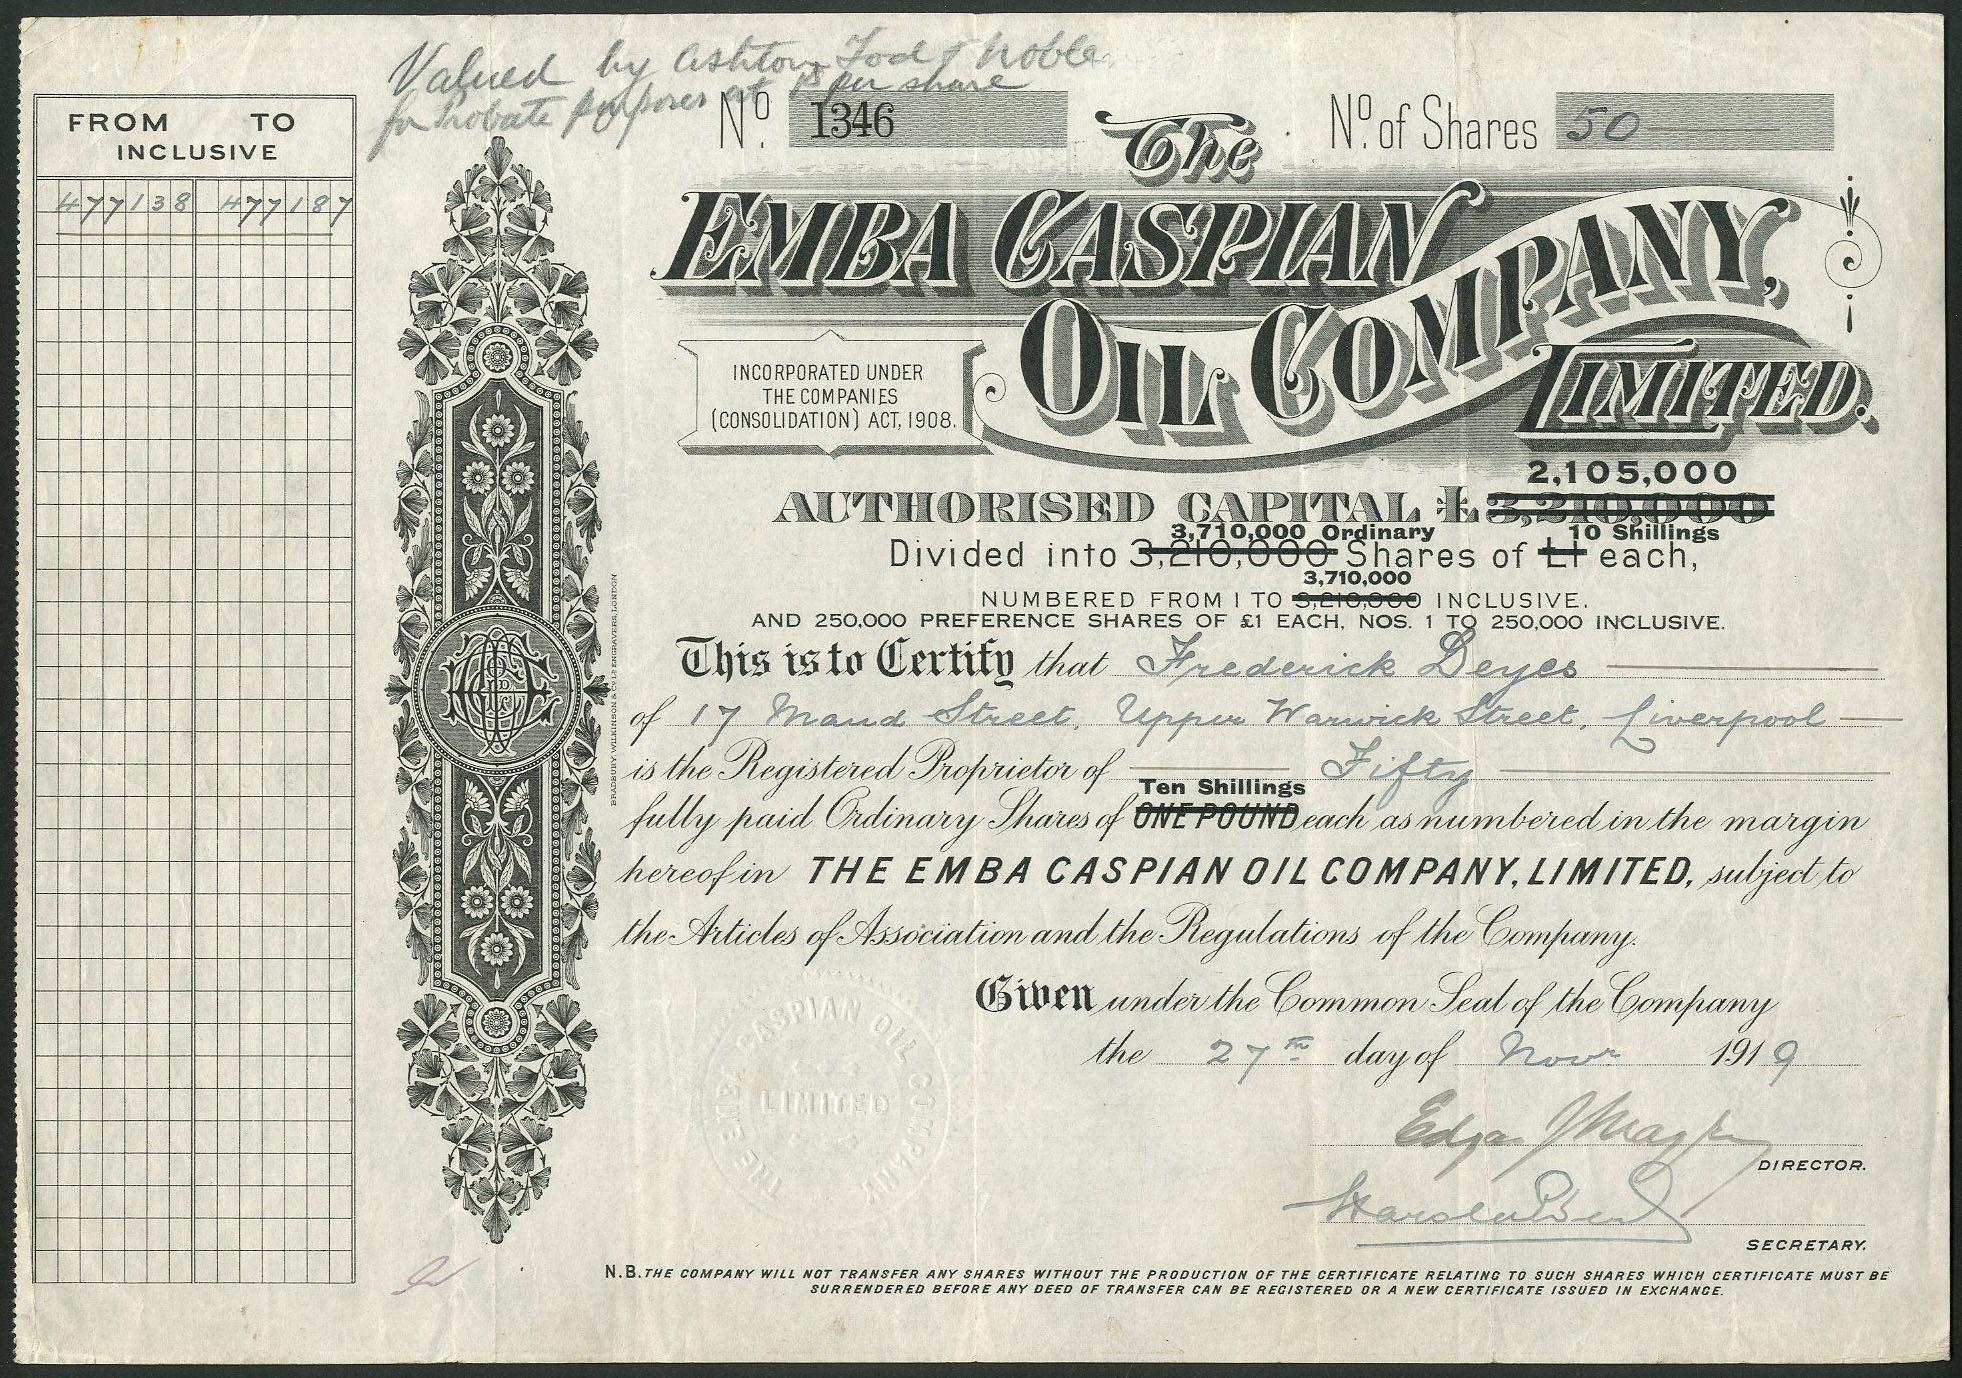 Valued by Ashton Tod & Noble
for Probate purposes at 1/3 per share
FROM TO
INCLUSIVE
477138 477187
No. 1346
No. of Shares 50
The
EMBA CASPIAN
OIL COMPANY,
LIMITED.
INCORPORATED UNDER
THE COMPANIES
(CONSOLIDATION) ACT, 1908.
2,105,000
AUTHORISED CAPITAL £3,210,000
3,710,000 Ordinary 10 Shillings
Divided into 3,210,000 Shares of £1 each,
3,710,000
NUMBERED FROM 1 TO 3,210,000 INCLUSIVE.
AND 250,000 PREFERENCE SHARES OF £1 EACH, NOS. 1 TO 250,000 INCLUSIVE.
This is to Certify that Frederick Deyes
of 17 Maud Street, Upper Warwick Street, Liverpool
is the Registered Proprietor of Fifty
Ten Shillings
fully paid Ordinary Shares of ONE POUND each as numbered in the margin
hereof in THE EMBA CASPIAN OIL COMPANY, LIMITED, subject to
the Articles of Association and the Regulations of the Company.
Given under the Common Seal of the Company
the 27th day of Novr 1919
Edgar
DIRECTOR.
Harold
SECRETARY.
THE EMBA CASPIAN OIL COMPANY
LIMITED
BRADBURY, WILKINSON & Co. Ld. ENGRAVERS, LONDON
N.B. THE COMPANY WILL NOT TRANSFER ANY SHARES WITHOUT THE PRODUCTION OF THE CERTIFICATE RELATING TO SUCH SHARES WHICH CERTIFICATE MUST BE
SURRENDERED BEFORE ANY DEED OF TRANSFER CAN BE REGISTERED OR A NEW CERTIFICATE ISSUED IN EXCHANGE.